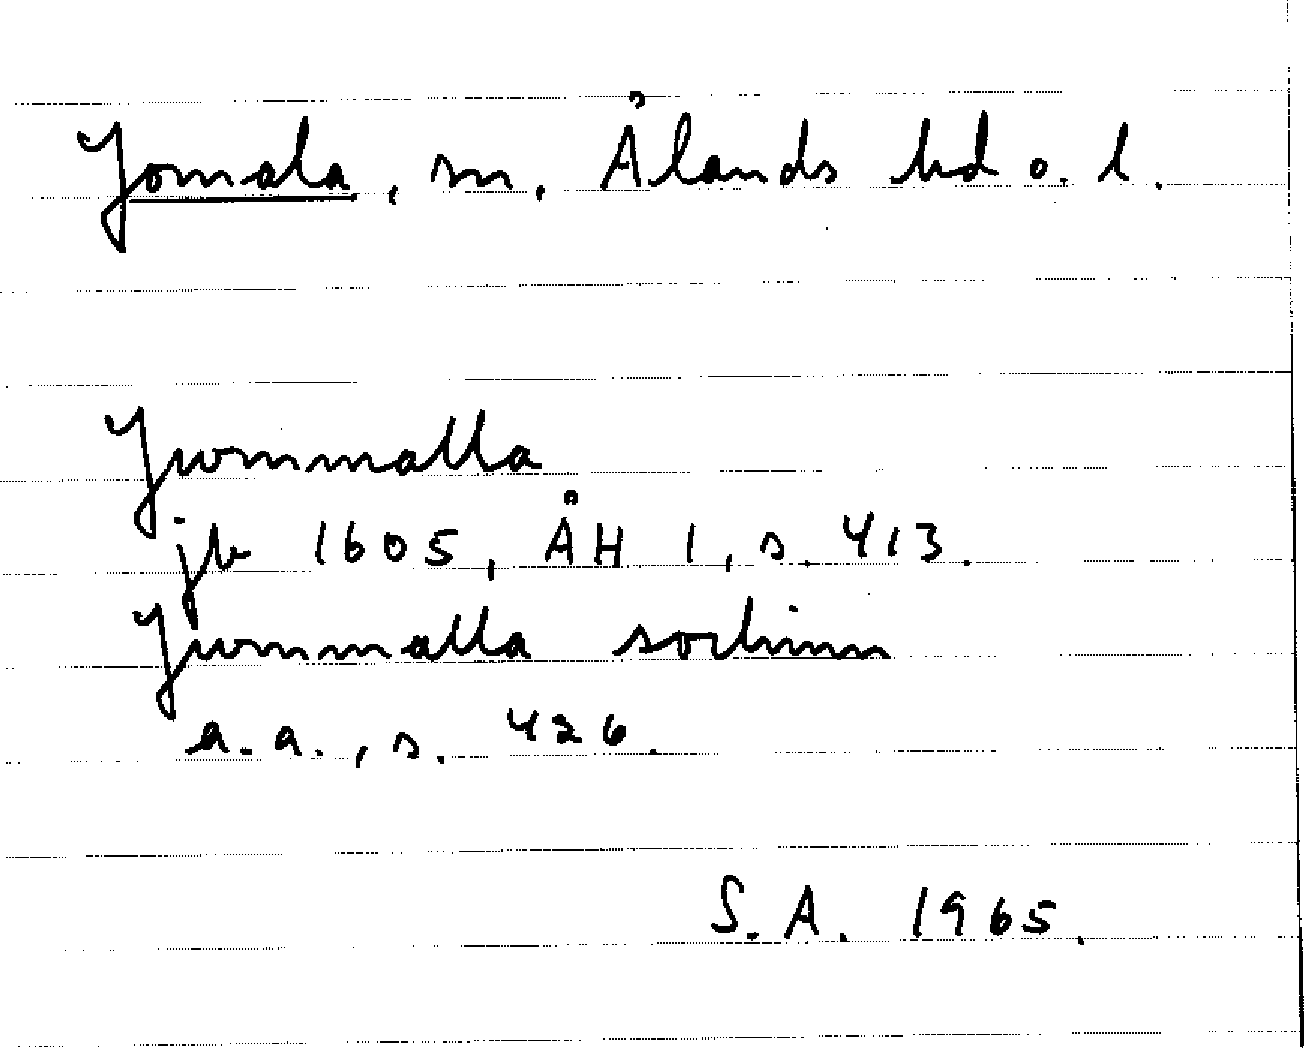 Jomala, sn, Ålands hd o. l.
Jwmmalla
jb 1605, ÅH 1, s. 413.
Jwmmalla sochinn
a.a., s. 426.
S.A. 1965.